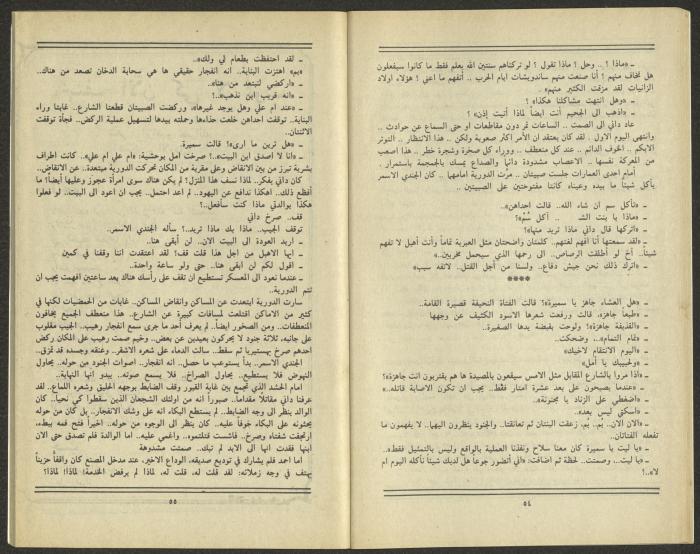 ـ «ماذا ! .. وحل ! ماذا تقول ؟ لو تركناهم سنتين الله يعلم فقط ما كانوا سيفعلون
هل تخاف منهم ! أنا صنعت منهم ساندويشات ايام الحرب .. أتفهم ما اعني ! هؤلاء اولاد
الزانيات لقد مزقت الكثير منهم» .
ـ «وهل انتهت مشاكلنا هكذا» ؟
ـ «اذهب الى الجحيم أنت ايضاً لماذا أتيت إذن» ؟
عاد داني الى الصمت .. الساعات تمر دون مقاطعات او حتى السماع عن حوادث ..
وانتهى اليوم الاول . لقد كان يعتقد ان الأمر اكثر صعوبة ولكن .. هذا الانتظار .. التوتر
الابكم .. الخوف الدائم .. عند كل منعطف .. ووراء كل صخرة وشجرة خطر .. هذا اصعب
من المعركة نفسها .. الاعصاب مشدودة دائماً والصداع يمسك بالجمجمة باستمرار .
أمام احدى العمارات جلست صبيتان .. مرت الدورية امامها .. كان الجندي الاسمر
يأكل شيئاً ما بيده وعيناه كانتا مفتوحتين على الصبيتين ..
ـ «تأكل سم ان شاء الله.. قالت احداهن».
ـ «ماذا يا بنت الشـ .. آكل سُمْ»؟
ـ «اتركها قال داني ماذا تريد منها»؟
ـ «لقد سمعتها أنا أفهم لغتهم.. كلمتان واضحتان مثل العبرية تماماً وأنت أهبل لا تفهم
شيئاً.. آخ لو أطلقت الرصاص.. الى رحمها الذي سيحمل مخربين»..
ـ «اترك ذلك نحن جيش دفاع.. ولسنا من أجل القتل.. لاتفه سبب»
****
ـ «هل العشاء جاهز يا سميرة»؟ قالت الفتاة النحيفة قصيرة القامة..
ـ «طبعاً جاهز، قالت ورفعت شعرها الأسود الكثيف عن وجهها
ـ «القذيفة جاهزة»؟ ولوحت بقبضة يدها الصغيرة..
ـ «تمام التمام».. وضحكت..
ـ «اليوم الانتقام لاخيك»
ـ «ولحبيبك يا أمل»
ـ «اذا مروا بالشارع المقابل مثل الامس سيقعون بالمصيدة ها هم يقتربون انت جاهزة»؟
ـ «عندما يصبحون على بعد عشرة امتار فقط.. يجب ان تكون الاصابة قاتلة..»
ـ «اضغطي على الزناد يا مجنونة»..
ـ «اسكتي ليس بعد»..
ـ «الان الان.. بُم، بُم، زعقت البنتان ثم تعانقتا.. والجنود ينظرون اليهما.. لا يفهمون ما
تفعله الفتاتان..
ـ «يا ليت يا سميرة كان معنا سلاح ونفذنا العملية بالواقع وليس بالتمثيل فقط»..
ـ «يا ليت.. وصمتت.. لحظة ثم اضافت: «اني أتضور جوعاً هل لديك شيئاً نأكله اليوم ام
لا»..!
٥٤
ـ لقد احتفظت بطعام لي ولك»..
«بم» اهتزت البناية.. انه انفجار حقيقي ها هي سحابة الدخان تصعد من هناك..
ـ «اركضي لنبتعد من هنا»..
ـ «انه قريب اين نذهب»..؟
ـ «عند ام علي وهل يوجد غيرها».. وركضت الصبيتان قطعتا الشارع.. غابتا وراء
البناية.. توقفت احداهن خلعت حذاءها وحملته بيدها لتسهيل عملية الركض.. فجأة توقفت
الاثنتان..
ـ «هل ترين ما ارى»؟ قالت سميرة.
ـ «انا لا اصدق اين البيت».. صرخت امل بوحشية: «ام علي ام علي».. كانت اطراف
بشرية تبرز من بين الانقاض وعلى مقربة من المكان تحركت الدورية مبتعدة.. عن الانقاض..
كان داني يفكر.. لماذا نسف هذا المنزل؟ لم يكن هناك سوى امرأة عجوز وعليها ايضاً؟ ما
أفظع ذلك.. اهكذا ندافع عن اليهود.. لم اعد احتمل.. يجب ان اعود الى البيت.. لو فعلوا
هكذا بوالدتي ماذا كنت سأفعل..؟
قف.. صرخ داني
توقف الجيب.. ماذا بك ماذا تريد..؟ سأله الجندي الاسمر..
ـ اريد العودة الى البيت الان.. لن أبقى هنا..
ـ ايها الاهبل من اجل هذا قلت قف؟ لقد اعتقدت اننا وقفنا في كمين
ـ اقول لكم لن ابقى هنا.. حتى ولو ساعة واحدة..
ـ عندما نعود الى المعسكر تستطيع ان تقف على رأسك هناك بعد ساعتين افهمت يجب ان
نتم الدورية..
سارت الدورية ابتعدت عن المساكن وانقاض المساكن.. غابات من الحمضيات لكنها في
كثير من الاماكن اقتلعت لمسافات كبيرة عن الشارع.. هذا منعطف الجميع يخافون
المنعطفات.. ومن الصخور ايضاً.. لم يعرف أحد ما جرى سمع انفجار رهيب.. الجيب مقلوب
على جانبه.. ثلاثة جنود لا يحركون بعيدين عن بعض.. وخيم صمت رهيب على المكان ركض
احدهم صرخ بهستيريا ثم سقط.. سالت الدماء على شعره الاشقر.. وعنقه وجسده قد تمزق..
الجندي الاسمر.. بدأ يستوعب ما حصل.. انه انفجار.. اصوات الجنود من حوله.. يحاول
النهوض فلا يستطيع.. يحاول الصراخ.. فلا يسمع صوته.. يبدو انها النهاية..
امام الحشد الذي تجمع بين غابة القبور وقف الضابط بوجهه الحليق وشعره اللماع.. لقد
عرفنا داني مقاتلاً مقداماً.. صبوراً انه من اولئك الشجعان الذين سقطوا كي نحيا.. كان
الوالد ينظر الى وجه الضابط.. لم يستطع البكاء انه على وشك الانفجار.. بل كان من حوله
يحثونه على البكاء خوفاً عليه.. كان ينظر الى الوجوه من حوله.. اخيراً فتح فمه ببطء،
ارتجفت شفتاه وصرخ.. فاشست قتلتموه.. واغمي عليه.. اما الوالدة فلم تصدق حتى الان
ابنها فقدت انها الى الابد لم تبك.. صمتت مشدوهة
اما احمد فلم يشارك في توديع صديقه، الوداع الاخير، عند مدخل المصنع كان واقفاً حزيناً
يهتف في وجه زملائه: لقد قلت له، قلت له، لماذا لم يرفض الخدمة! لماذا! لماذا؟
٥٥